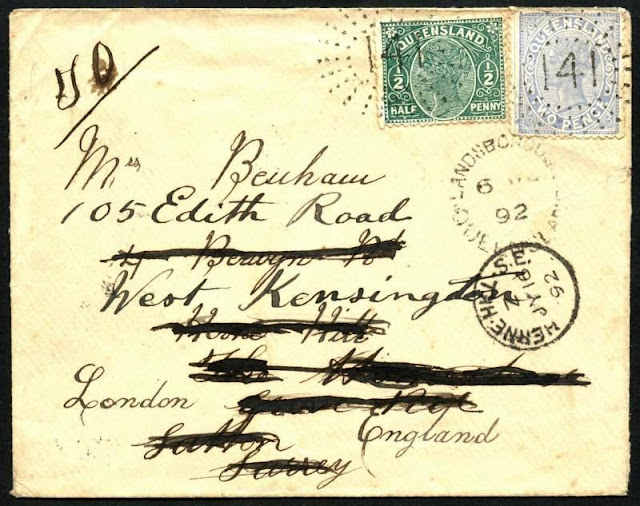 QUEENSLAND
1/2 1/2
HALF PENNY
141
QUEENSLAND
141
TWO PENCE
LANDSBOROUGH
6
92
QUEENSLAND
HERNE-HILL.S.E.
JY 16
92
Mrs Benham
105 Edith Road
4 Berwyn Rd
West Kensington
Herne Hill
The
Grove
London England
Sutton
Surrey